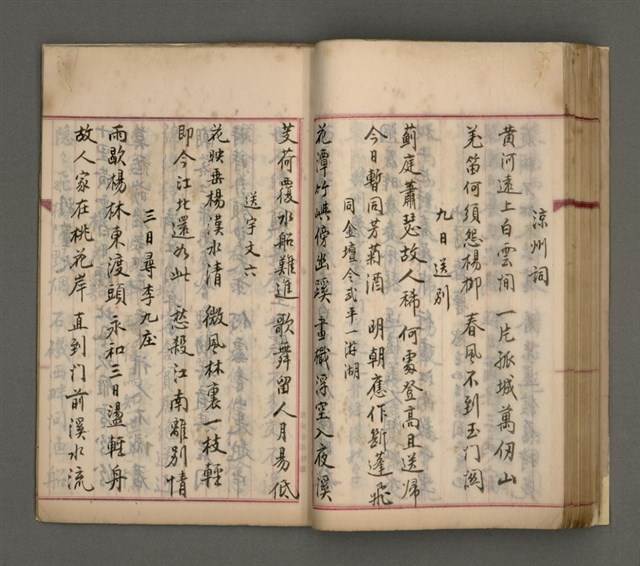 涼州詞
黃河遠上白雲間　一片孤城萬仞山
羌笛何須怨楊柳　春風不到玉門關
九日送別
薊庭蕭瑟故人稀　何處登高且送歸
今日暫同芳菊酒　明朝應作斷蓬飛
同金壇令武平一游湖
花潭竹嶼傍幽蹊　畫檝浮空入夜溪
芰荷覆水船難進　歌舞留人月易低
送宇文六
花映垂楊漢水清　微風林裏一枝輕
即今江北還如此　愁殺江南離別情
三日尋李九庄
雨歇楊林東渡頭　永和三日盪輕舟
故人家在桃花岸　直到門前溪水流